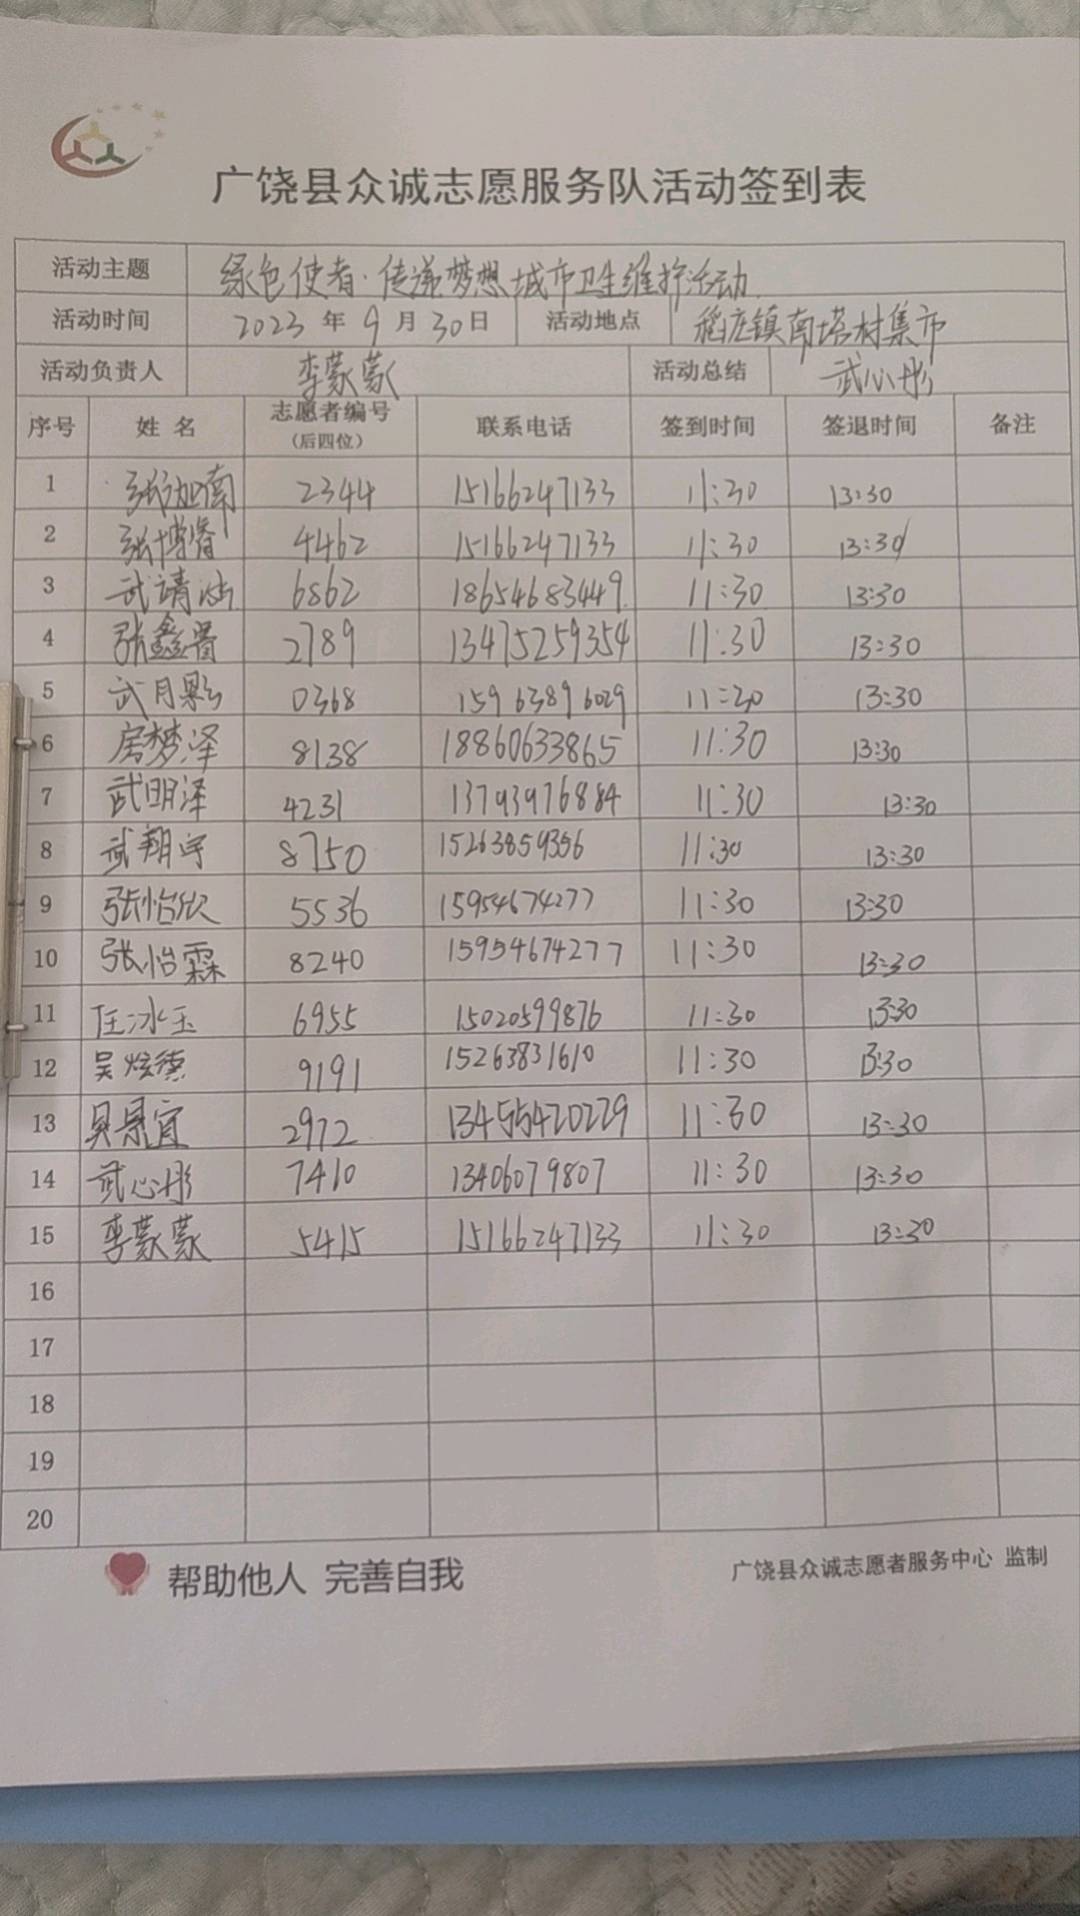 广饶县众诚志愿服务队活动签到表
活动主题 绿色使者·传递梦想城市卫生维护活动
活动时间 2023 年 9 月 30 日 活动地点 稻庄镇南塔村集市
活动负责人 李蒙蒙 活动总结 武心彤
序号 姓名 志愿者编号 联系电话 签到时间 签退时间 备注
(后四位)
1 张加南 2344 15166247133 11:30 13:30
2 张博睿 4462 15166247133 11:30 13:30
3 武靖 6862 18654683449 11:30 13:30
4 张鑫 2789 13475259354 11:30 13:30
5 武月影 0368 15963896029 11:30 13:30
6 房梦泽 8138 18860633865 11:30 13:30
7 武明泽 4231 13793976884 11:30 13:30
8 武翔宇 8750 15263859356 11:30 13:30
9 张怡欣 5536 15954674277 11:30 13:30
10 张怡霖 8240 15954674277 11:30 13:30
11 任冰玉 6955 15020599876 11:30 13:30
12 吴炫德 9191 15263831610 11:30 13:30
13 景宜 2972 13455420229 11:30 13:30
14 武心彤 7410 13406079807 11:30 13:30
15 李蒙蒙 5415 15166247133 11:30 13:30
16
17
18
19
20
帮助他人 完善自我 广饶县众诚志愿者服务中心 监制